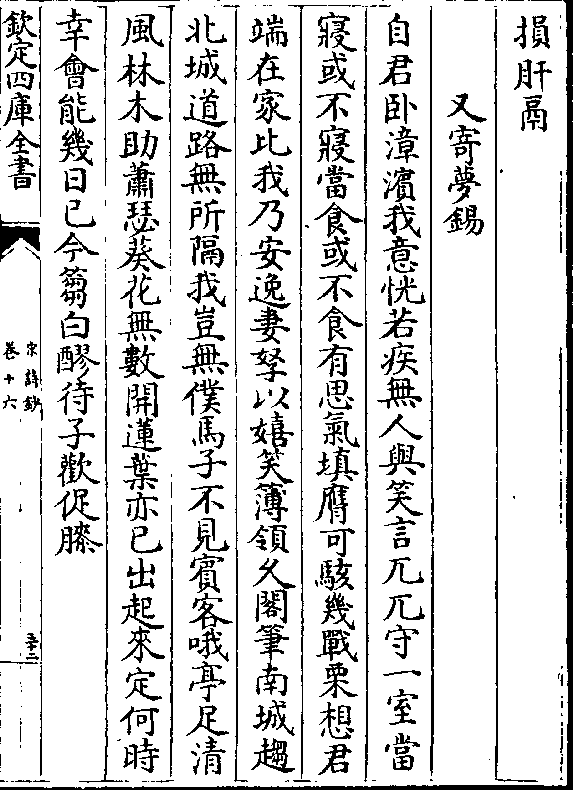 損肝鬲
又寄夢錫
自君卧漳濱我意恍若疾無人與笑言兀兀守一室當
寢或不寢當食或不食有思氣填膺可駭幾戰栗想君
端在家比我乃安逸妻孥以嬉笑簿領久閣筆南城趨
北城道路無所隔我豈無僕馬子不見賓客哦亭足清
風林木助蕭瑟葵花無數開蓮葉亦已出起來定何時
幸會能幾日已令芻白醪待子歡促膝
欽定四庫全書
宋詩鈔
卷十六